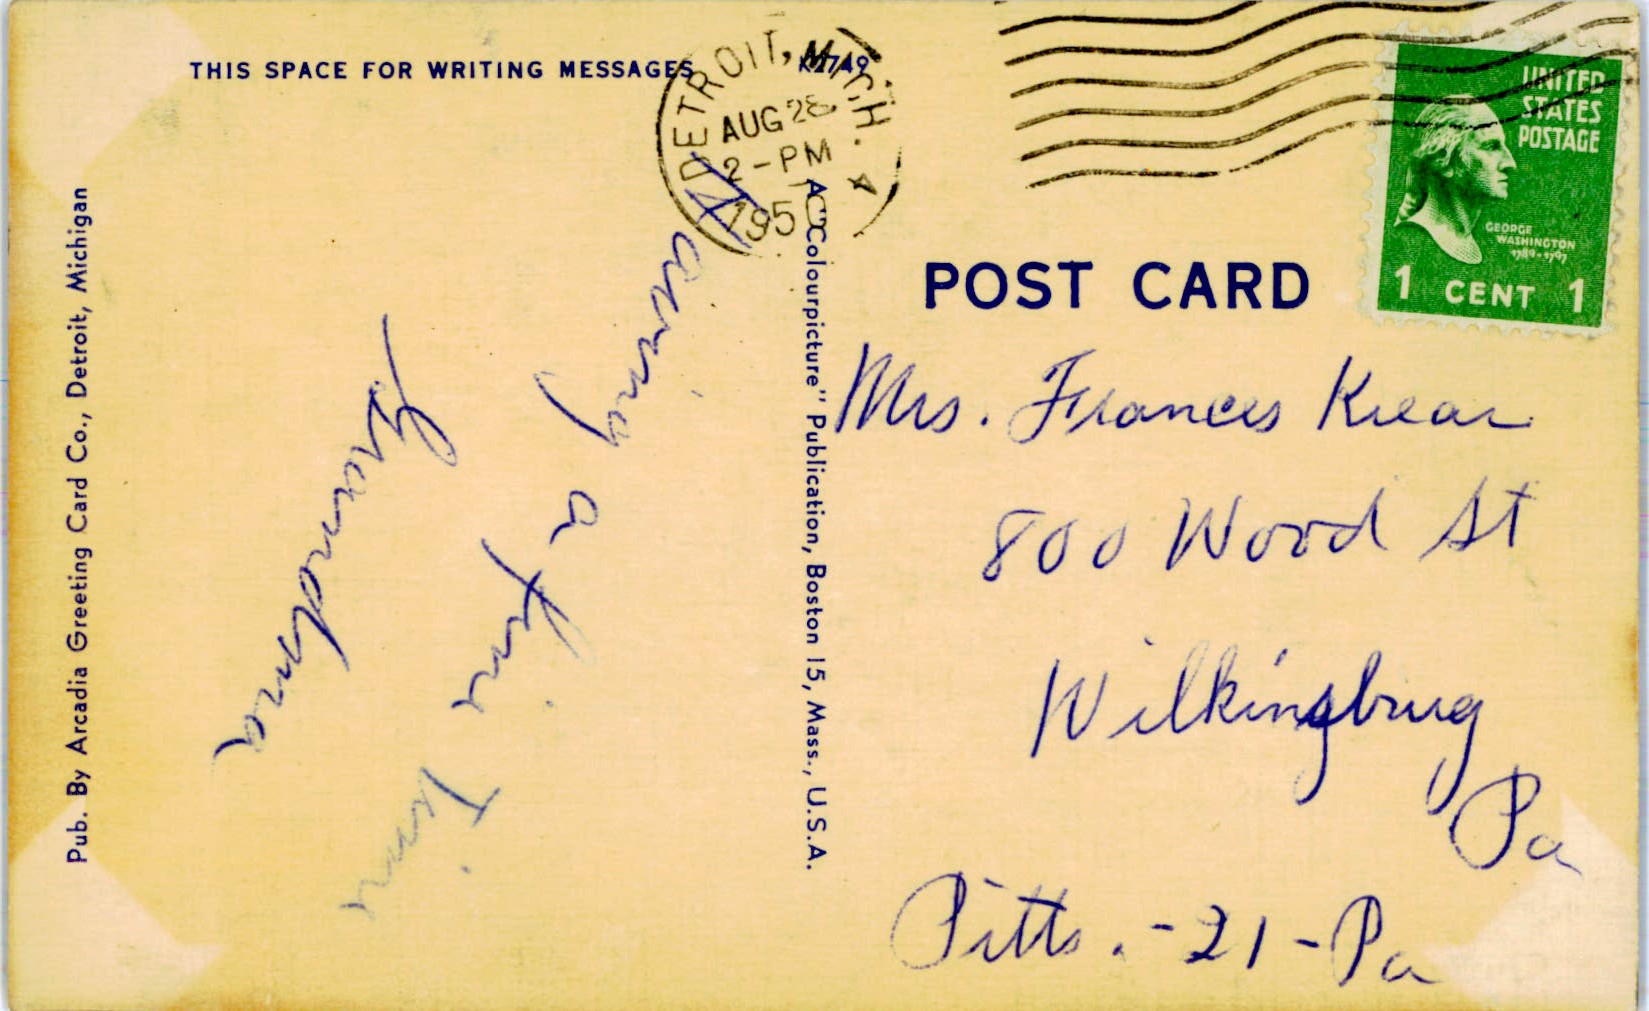 THIS SPACE FOR WRITING MESSAGES
K2749
DETROIT, MICH.
AUG 28
2-PM
1950
UNITED
STATES
POSTAGE
GEORGE
WASHINGTON
1789-1797
1 CENT 1
POST CARD
Having
a fine Time
Grandma
Pub. By Arcadia Greeting Card Co., Detroit, Michigan
A "Colourpicture" Publication, Boston 15, Mass., U.S.A.
Mrs. Frances Krear
800 Wood St
Wilkinsbrug
Pa
Pitts.-21-Pa